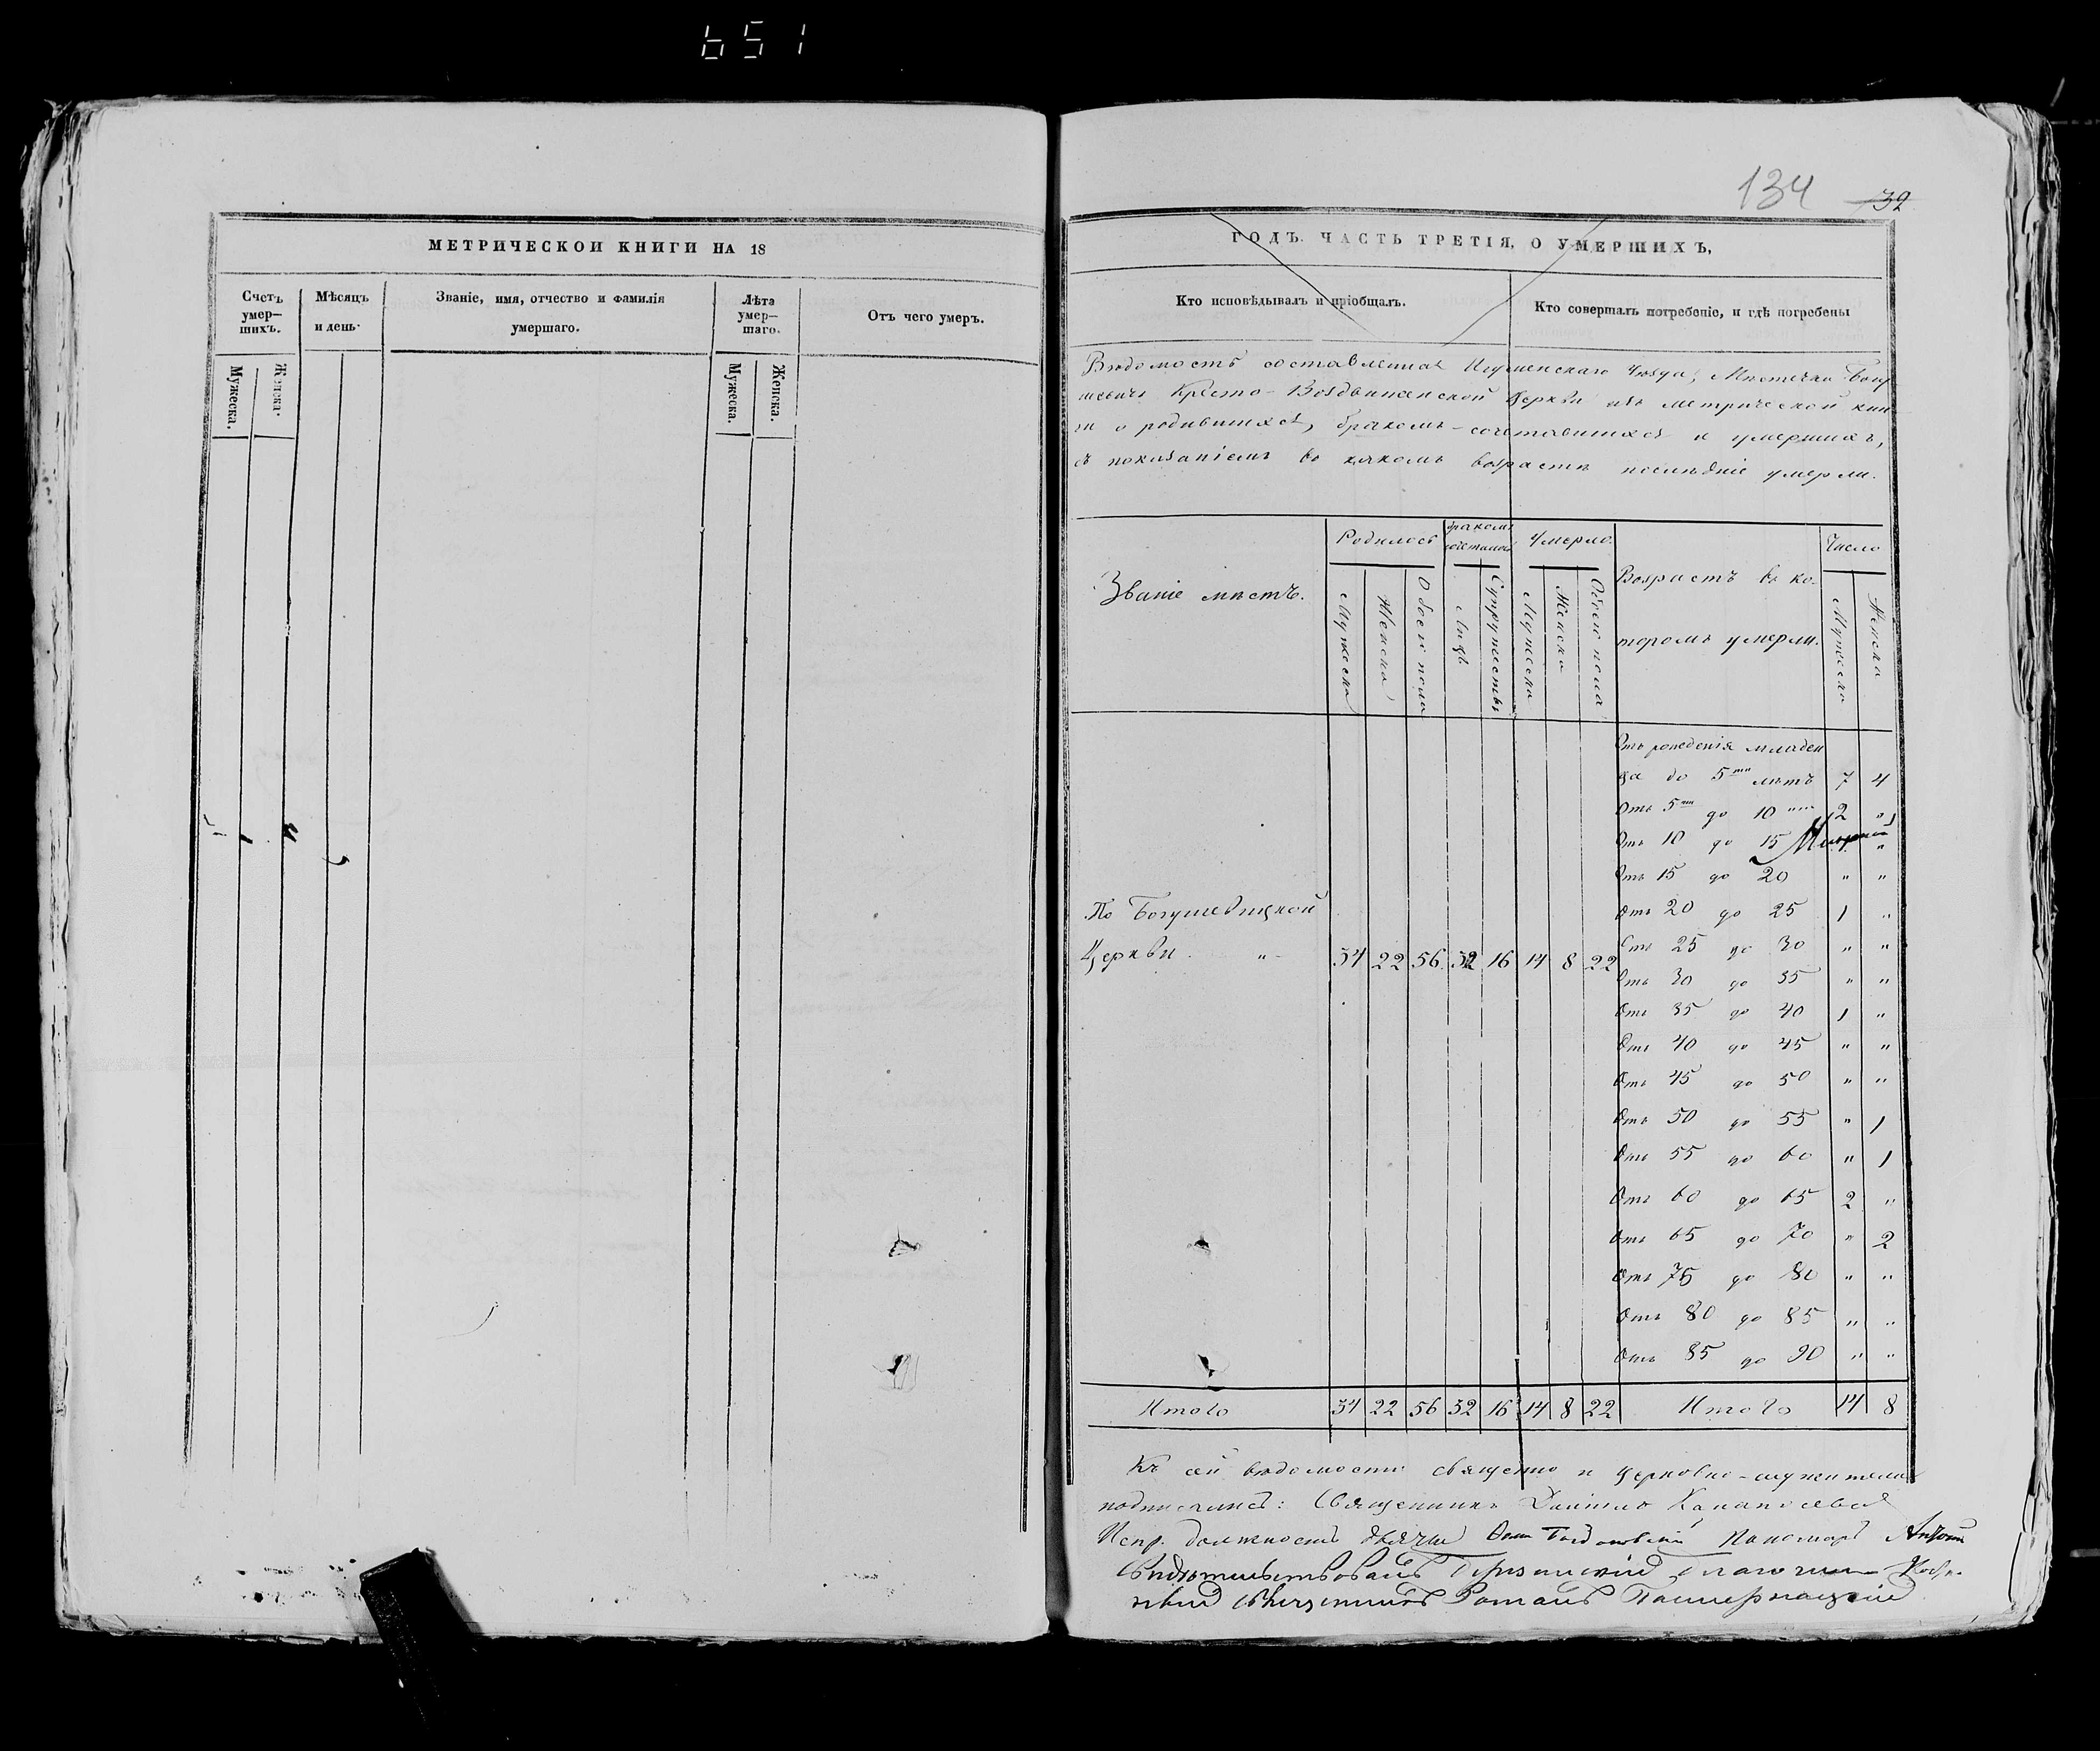 651
МЕТРИЧЕСКОЙ КНИГИ НА 18
Счетъ умер—шихъ.
Мужеска.
Женска.
Мѣсяцъ и день.
Званіе, имя, отчество и фамилія
умершаго.
Лѣта умер—шаго.
Мужеска.
Женска.
Отъ чего умеръ.
134 32
ГОДЪ. ЧАСТЬ ТРЕТІЯ, О УМЕРШИХЪ,
Кто исповѣдывалъ и пріобщалъ.
Кто совершалъ погребеніе, и гдѣ погребены
Вѣдомость составленная Игуменскаго Уѣзда, Мѣстечка Богу
шевичъ Кресто-Воздвиженской Церкви изъ метрической кни
ги о родившихся, бракомъ-сочетавшихся и умершихъ,
съ показаніемъ въ какомъ возрастѣ послѣдніе умерли.
Званіе мѣстъ.
Родилось
Мужеска
Женска
Обоего пола
бракомъ сочеталось
Лицъ
Супружествъ
Умерло
Мужеска
Женска
Обоего пола
Возрастъ въ ко-
торомъ умерли.
Число
Мужеска
Женска
Отъ рожденія младен
ца до 5ти лѣтъ 7 4
Отъ 5ти до 10ти 2 "
Отъ 10 до 15 1 "
Отъ 15 до 20 " "
Отъ 20 до 25 1 "
Отъ 25 до 30 " "
Отъ 30 до 35 " "
Отъ 35 до 40 1 "
Отъ 40 до 45 " "
Отъ 45 до 50 " "
Отъ 50 до 55 " 1
Отъ 55 до 60 " 1
Отъ 60 до 65 2 "
Отъ 65 до 70 " 2
Отъ 75 до 80 " "
Отъ 80 до 85 " "
Отъ 85 до 90 " "
По Богушевицкой
Церкви " 34 22 56 32 16 14 8 22
Итого 34 22 56 32 16 14 8 22 Итого 14 8
Къ сей вѣдомости священно и церковно-служители
подписались: Священникъ Даніилъ
Испр. должность дьячка Пономарь Антон
Свидѣтельствовалъ Благочин
Священникъ Романъ